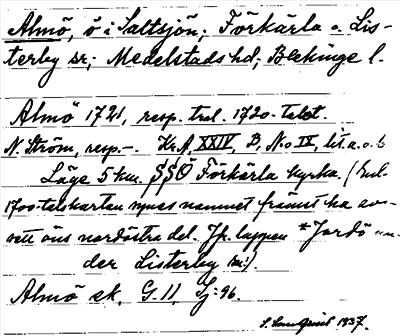 Almö, ö i Saltsjön; Förkärla o. Lis-
terby sr; Medelstads hd; Blekinge l.
Almö 1721, resp. trol. 1720-talet.
N. Ström, resp. -. Kr.A. XXIV, B, No IX, lit. a. o. b
Läge 5 km. SSÖ Förkärla kyrka. (Enl.
1700-talskartan synes namnet främst ha av-
sett öns nordöstra del. Jfr lappen *Jordö un-
der Listerby sn:).
Almö ek. G. 11, Sj: 96.
1937.